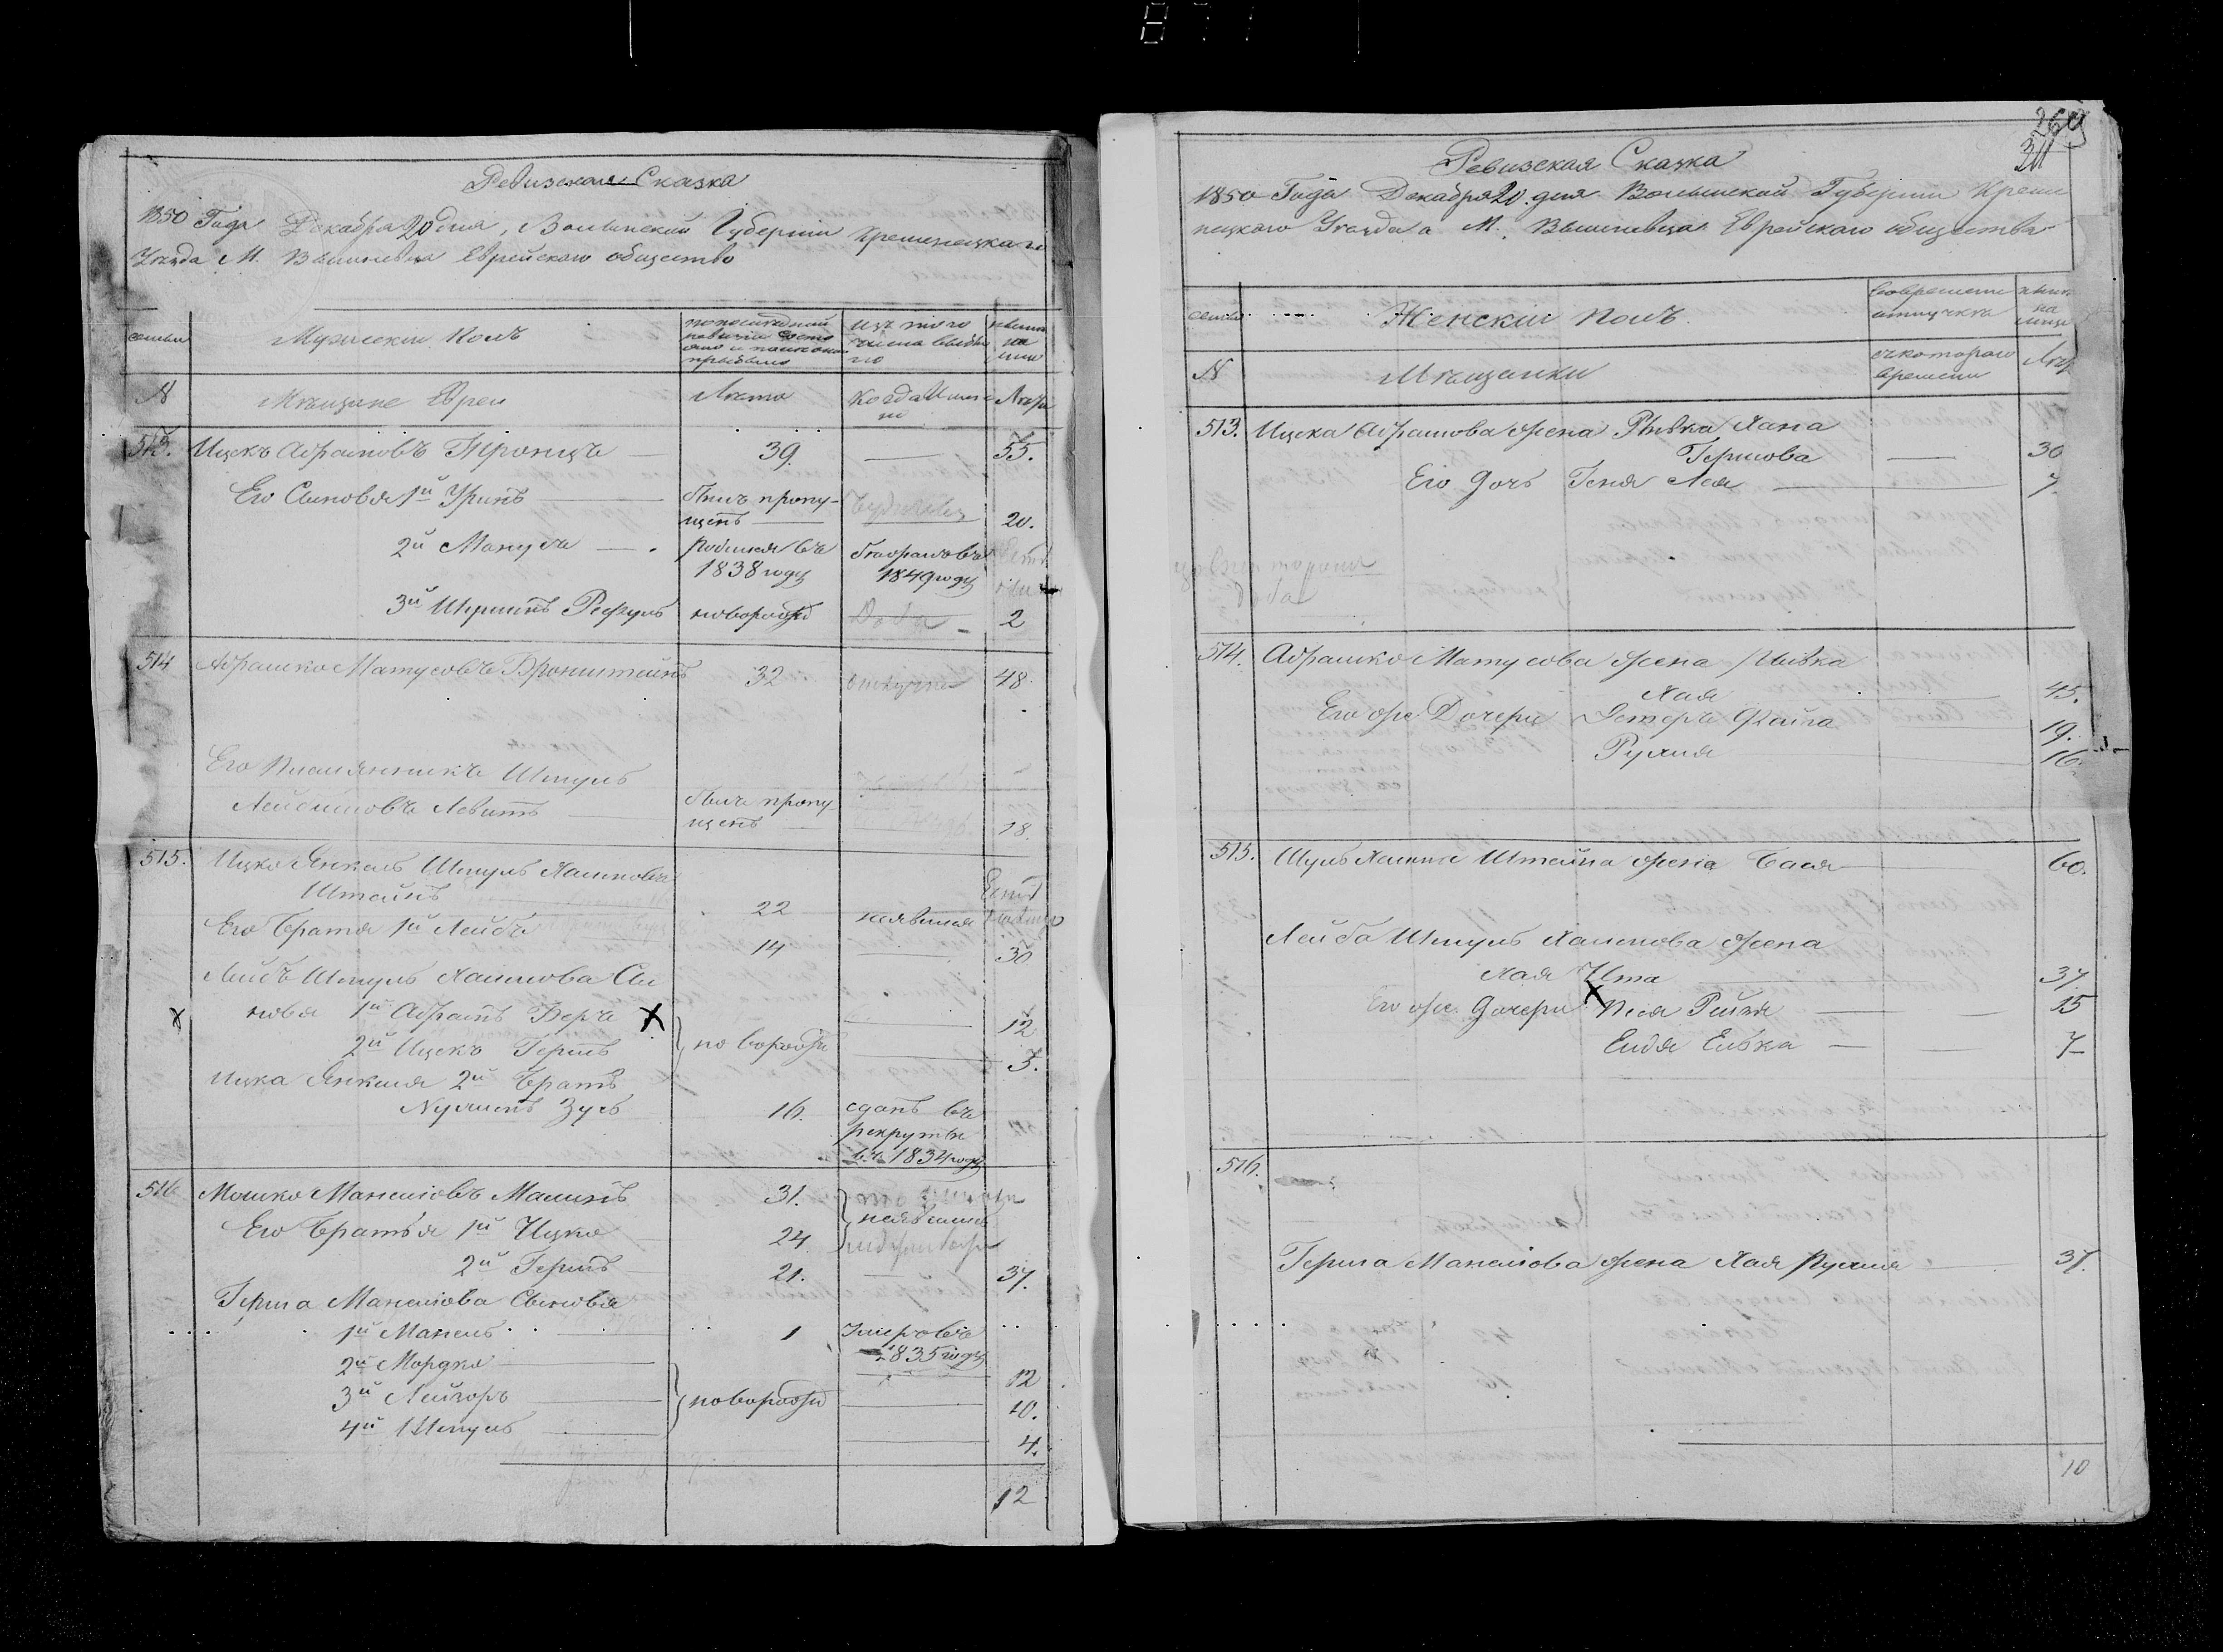 Ревизская Сказка
1850 Года Декабря 20 дня, Волынской Губернии Кременецкаго
Уезда М. Вишневца Еврейского общество
семьи
Мужеский Полъ
по последней ревизии состояло и после оной прибыло
изъ того числа выбыло
ныне на лицо
№
Мещане Евреи
Лета
Когда именно
Лета
513. Ицекъ Абрамовъ 39. 55.
Его Сыновья 1й Уринъ Былъ пропущенъ 20.
2й Манусъ Родился въ 1838 году 1849 году
3й Шулимъ Рефулъ новорожд 2
514 Абрамко Матусовъ Бронштейнъ 32 отлучке 48
Его Племянникъ Шмуль
Лейбишовъ Левитъ Былъ пропущенъ 18.
515. Ицко Янкель Шмуль Хаимовъ
Штейнъ 22 неявился
Его Братья 1й Лейбъ 14 30
Лейбъ Шмуль Хаимова Сы
новья 1й Абрамъ Беръ X 12
2й Ицекъ Гершъ новорожд 5.
Ицка Янкеля 2й Братъ
Нухимъ Зусь 16. сданъ въ
рекруты
въ 1834 году
516 Мошко Манелювъ 31.
Его Братья 1й Ицко 24 неявились
2й Гершъ 21. 37.
Герша Манелюва Сыновья
1й Манель 1 Умеръ въ
1835 году
2й Мордко 12
3й Лейзоръ новорожд 10.
4й Шмуль 4.
12
269
311
Ревизская Сказка
1850 Года Декабря 20 дня Волынской Губернии Креме
нецкого Уезда М. Вишневца Еврейского общества
семьи
Женский Полъ
во временной отлучке
ныне на лицо
№
Мещанки
съ котораго времени
Лета
513. Ицека Абрамова жена Рывка Хана
Гершова 30
Его дочь Геня Лея 7.
514. Абрамко Матусова жена Цывка
Хая 45.
Его же Дочери Эстеръ Файга 19.
Рухля 16.
515. Шуль Хаима Штейна жена Бася 60.
Лейба Шмуль Хаимова жена
Хая Ита 37
Его же дочери Песя Рейзя 15
Ендя Сивка 7
516.
Герша Манелюва жена Хая Рухля 37.
10